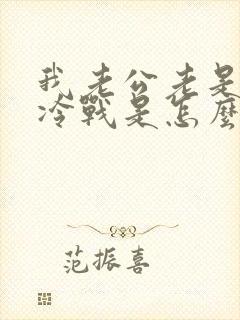 我老公老是
冷戰是怎麼
范振喜